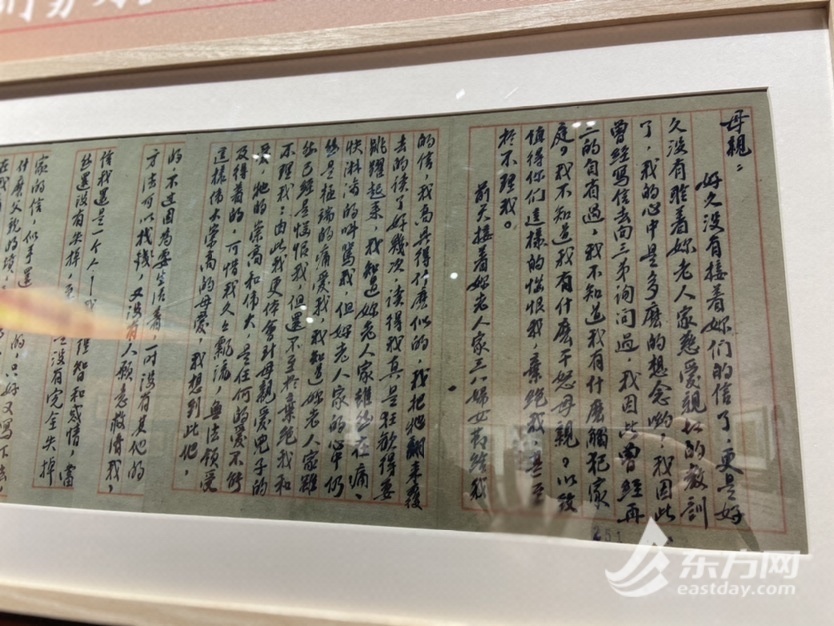 母親：
好久没有接着妳们的信了，更是好
久没有跟着妳老人家慈爱親切的教訓
了，我的心中是多麽的想念哟，我因此
曾經写信去向三弟詢问过，我因此曾經再
二的自有过，我不知道我有什麽觸犯家
庭？我不知道我有什麽干怒母親？以致
值得你们這樣的惱恨我，棄绝我，甚至
於不理我。
前天接着妳老人家三八婦女節给我
的信，我高興得什麽似的，我把他翻来覆
去的读了好幾次，读得我真是狂歡得要
跳躍起来，我知道妳老人家雖然在痛、
快淋漓的咩駡我，但妳老人家的心中仍
然是極端的痛爱我，我知道妳老人家雖
然已經是惱恨我，但還不至於棄绝我和
不理我；由此我更体會到母親爱兒子的
爱，她的崇高和伟大，是任何的爱不能
及得着的，可惜我久々飄流，無法领受
這樣伟大崇高的母爱，我想到此他，
的，不过因为要生活着，可没有其他的
方法可以找錢，又没有人願意救濟我，
惜我還是一个人！我理智和感情，當
然還没有失掉，也没有完全失掉
家的信，似乎還的，只好又写下去，
什麽父親的墳，
在我
251
东方网
eastday.com